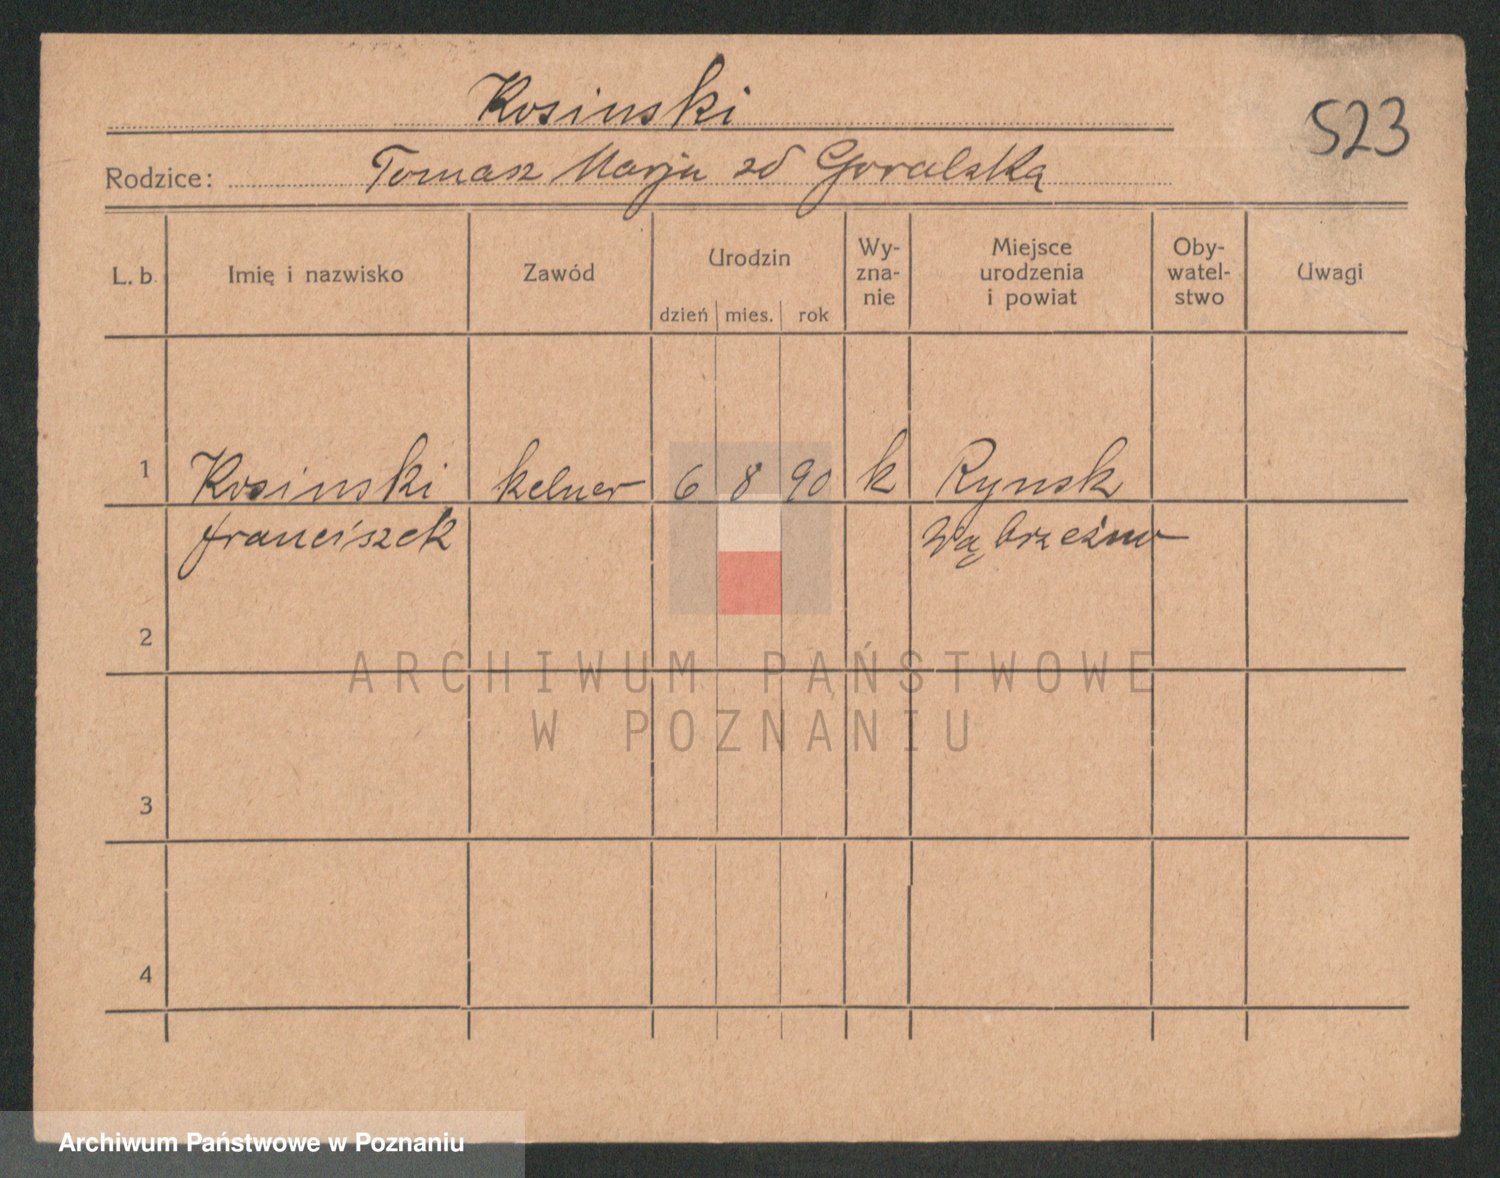 Kosinski
523
Rodzice: Tomasz Marja zd Goralska
L. b. Imię i nazwisko Zawód Urodzin Wy-zna-nie Miejsce urodzenia i powiat Oby-watel-stwo Uwagi
dzień mies. rok
1 Kosinski kelner 6 8 90 k Rynsk
franciszek Wąbrzeźno
2
ARCHIWUM PAŃSTWOWE
W POZNANIU
3
4
Archiwum Państwowe w Poznaniu